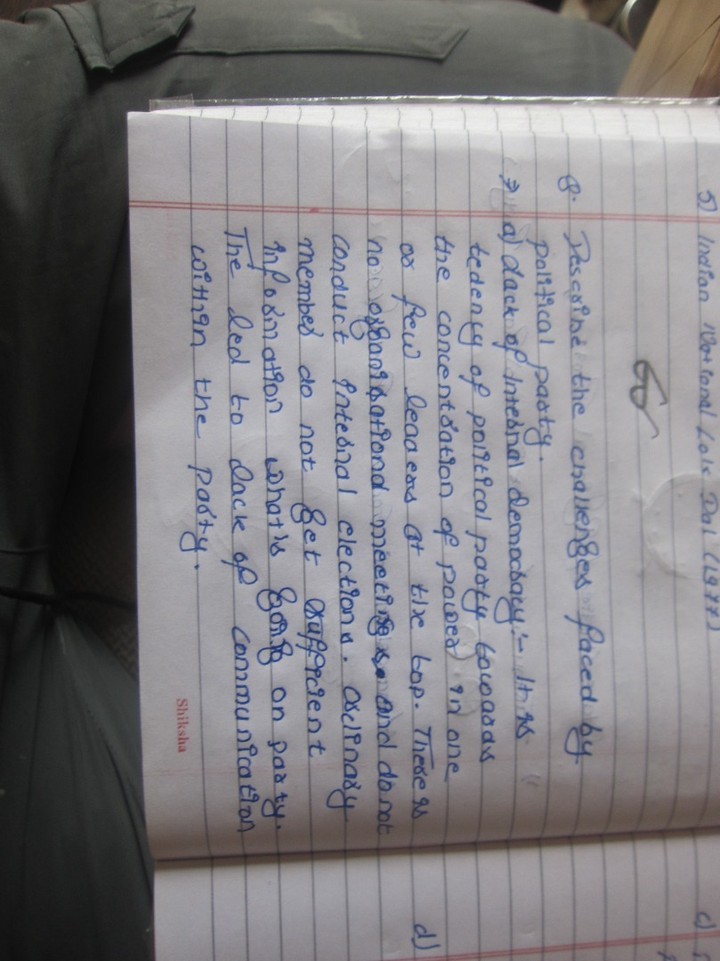 5) Indian National Lok Dal (1977)
Q. Describe the challenges faced by
political party.
→ a) Lack of internal democracy:- It is
tedency of political party towards
the concentration of power in one
or few leaders at the top. There is
no organisational meeting and do not
conduct internal elections. Orclinary
member do not get sufficient
information what is going on party.
The led to lack of communication
within the party.
Shiksha
c)
d)